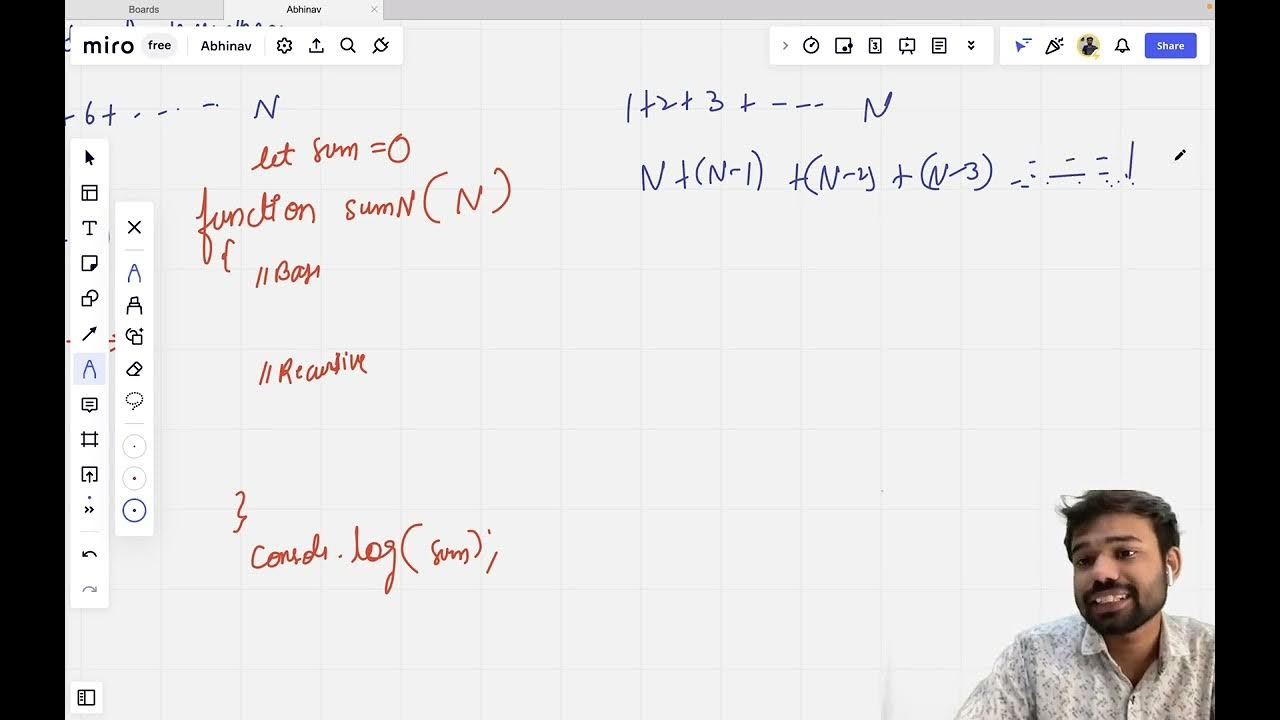 Boards
Abhinav
miro free Abhinav
3
Share
6 + ..... N
let sum = 0
function sumN(N)
{
// Base
// Recursive
}
console.log(sum);
1+2+3+---- N
N+(N-1) +(N-2) +(N-3) ------1